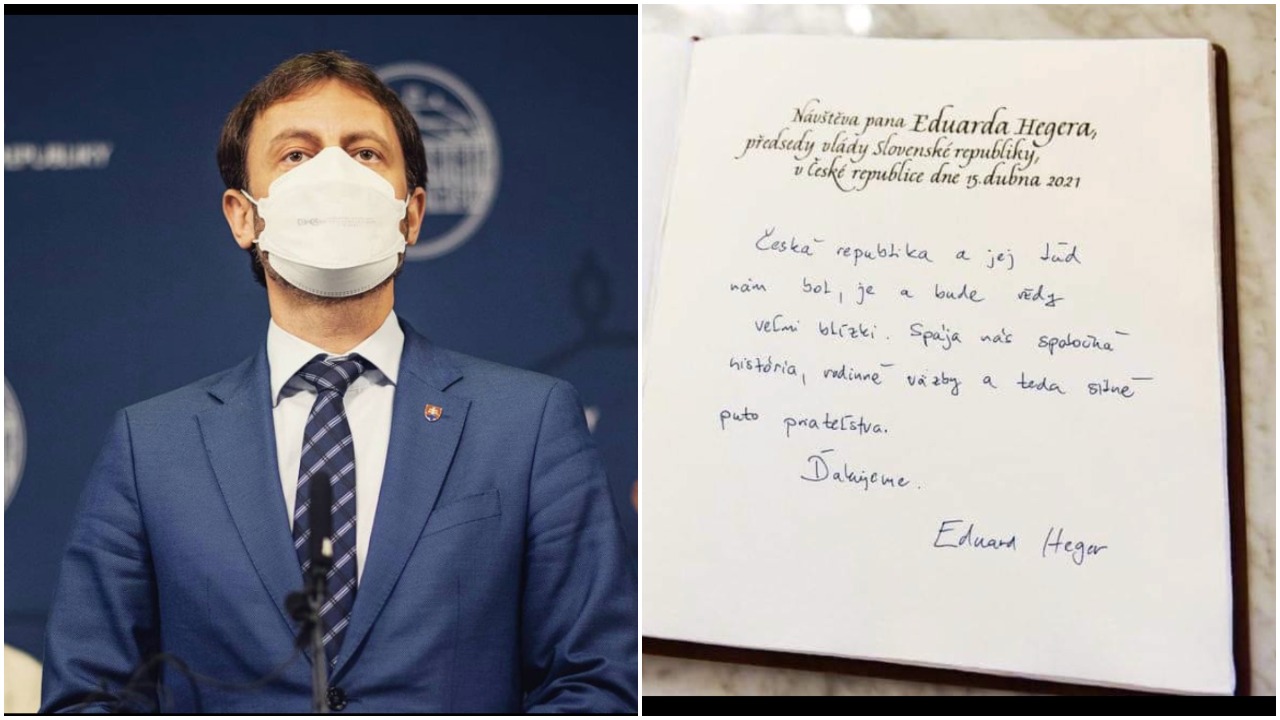 EPUBLIKY
Návštěva pana Eduarda Hegera,
předsedy vlády Slovenské republiky,
v České republice dne 15. dubna 2021
Česká republika a jej ľud
nám bol, je a bude vždy
veľmi blízki. Spája nás spoločná
história, rodinné väzby a teda silné
puto priateľstva.
Ďakujeme.
Eduard Heger